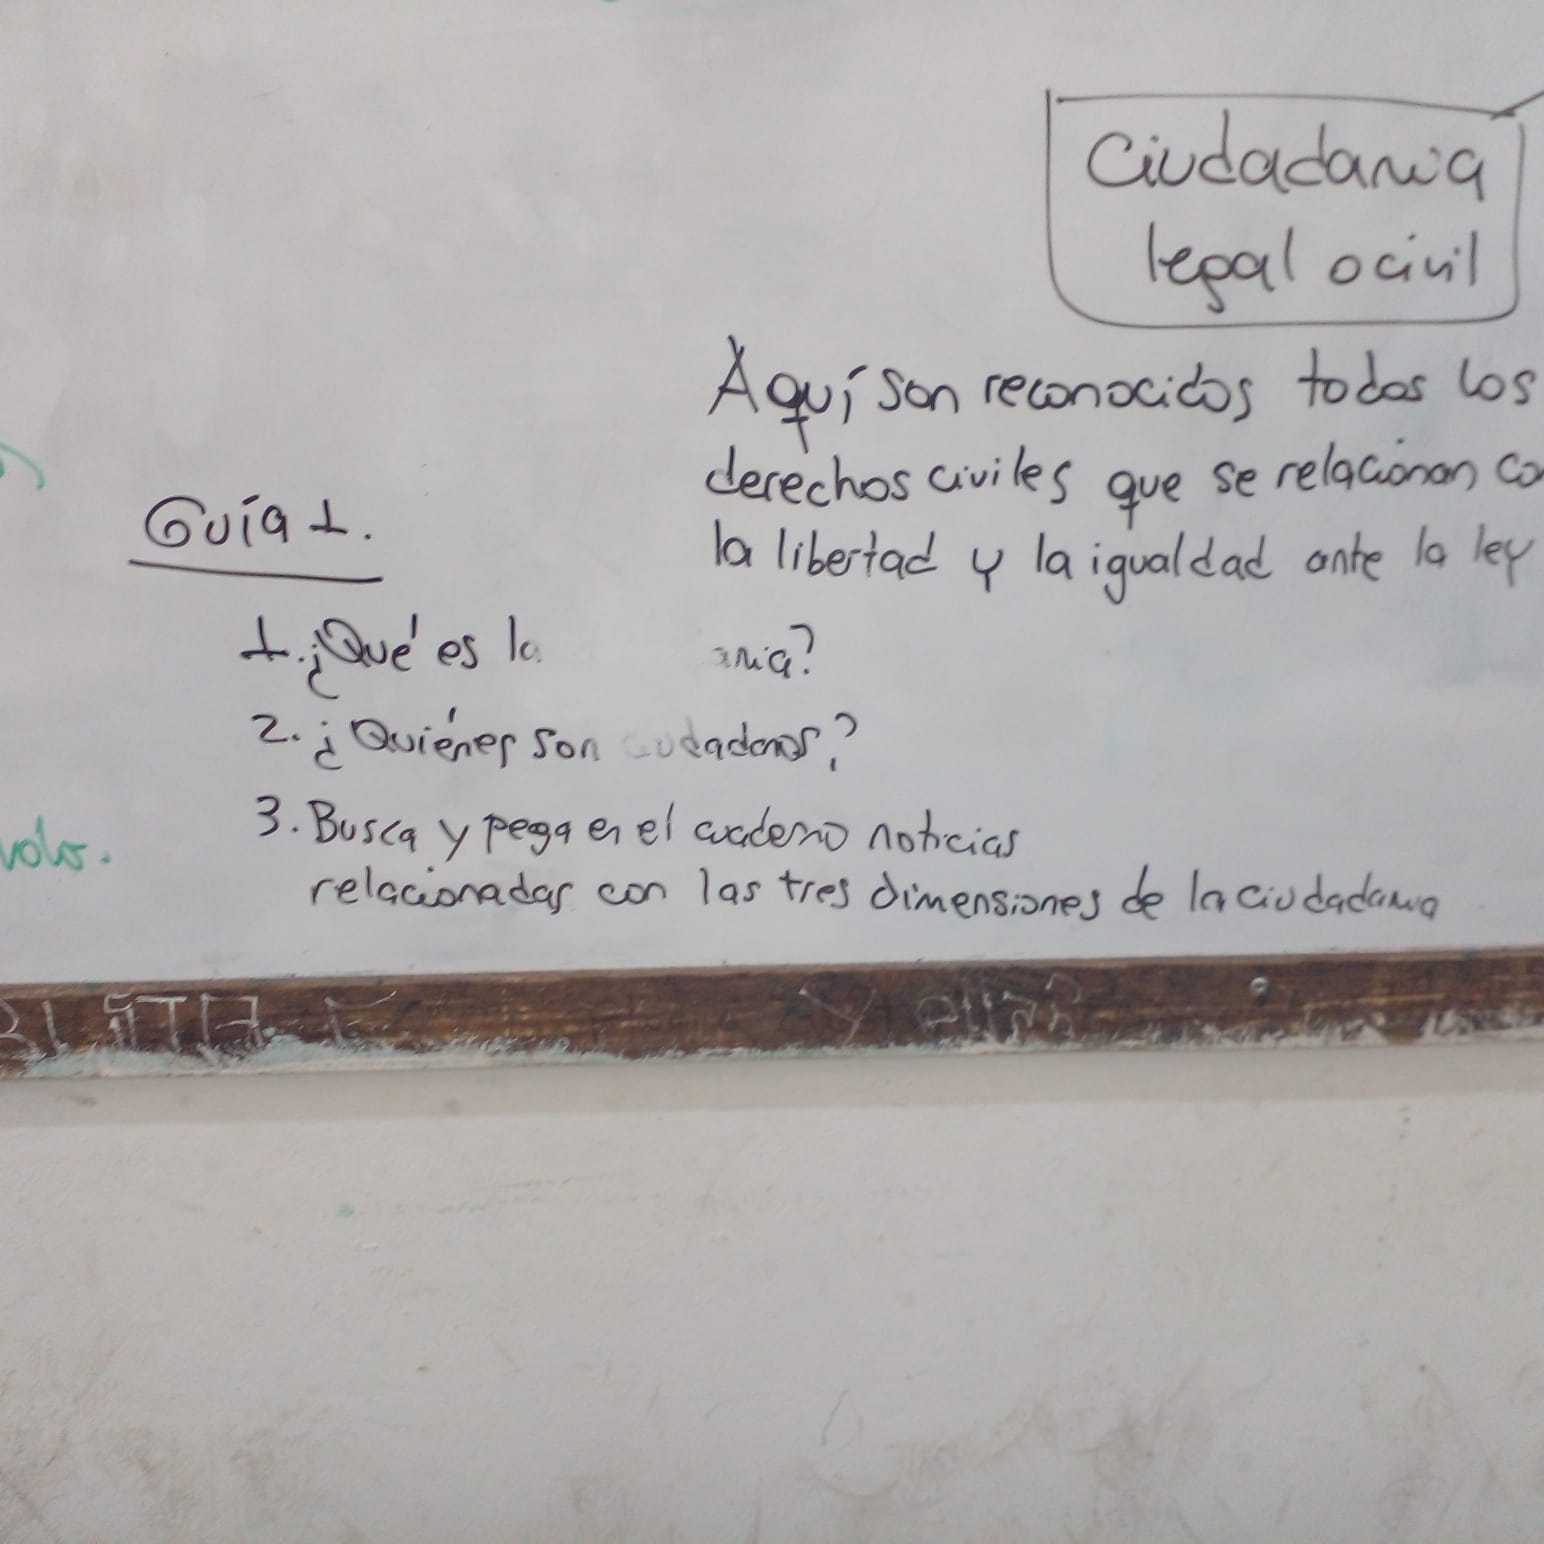 Ciudadania
legal o civil
Aquí son reconocidos todos los
derechos civiles que se relacionan co
la libertad y la igualdad ante la ley
Guía 1.
1. ¿Qué es la ania?
2. ¿Quiénes son ciudadanos?
3. Busca y pega en el cuaderno noticias
relacionadas con las tres dimensiones de la ciudadania